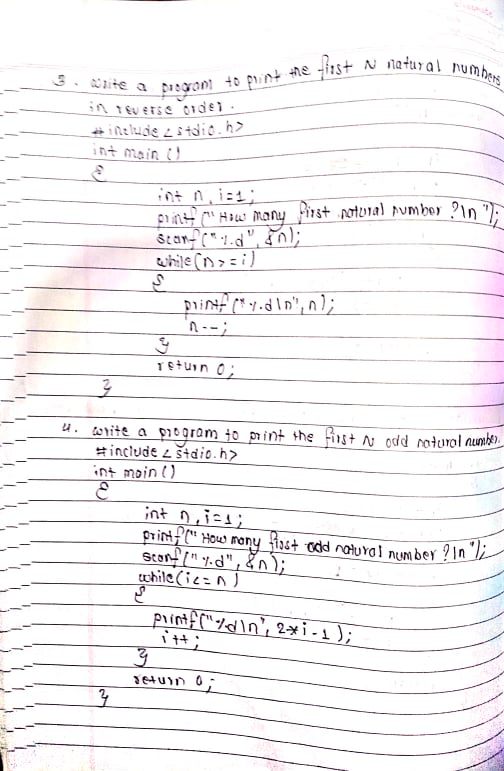 3. write a program to print the first N natural numbers
in reverse order.
#include <stdio.h>
int main ()
{
int n, i=1;
printf (" How many first natural number ?\n ");
scanf(" %d", &n);
while(n>=i)
{
printf (" %d\n", n);
n--;
}
return 0;
}
4. write a program to print the first N odd natural number.
#include <stdio.h>
int main ()
{
int n, i=1;
printf(" How many first odd natural number ?\n ");
scanf(" %d", &n);
while(i<=n)
{
printf("%d\n", 2*i-1);
i++;
}
return 0;
}